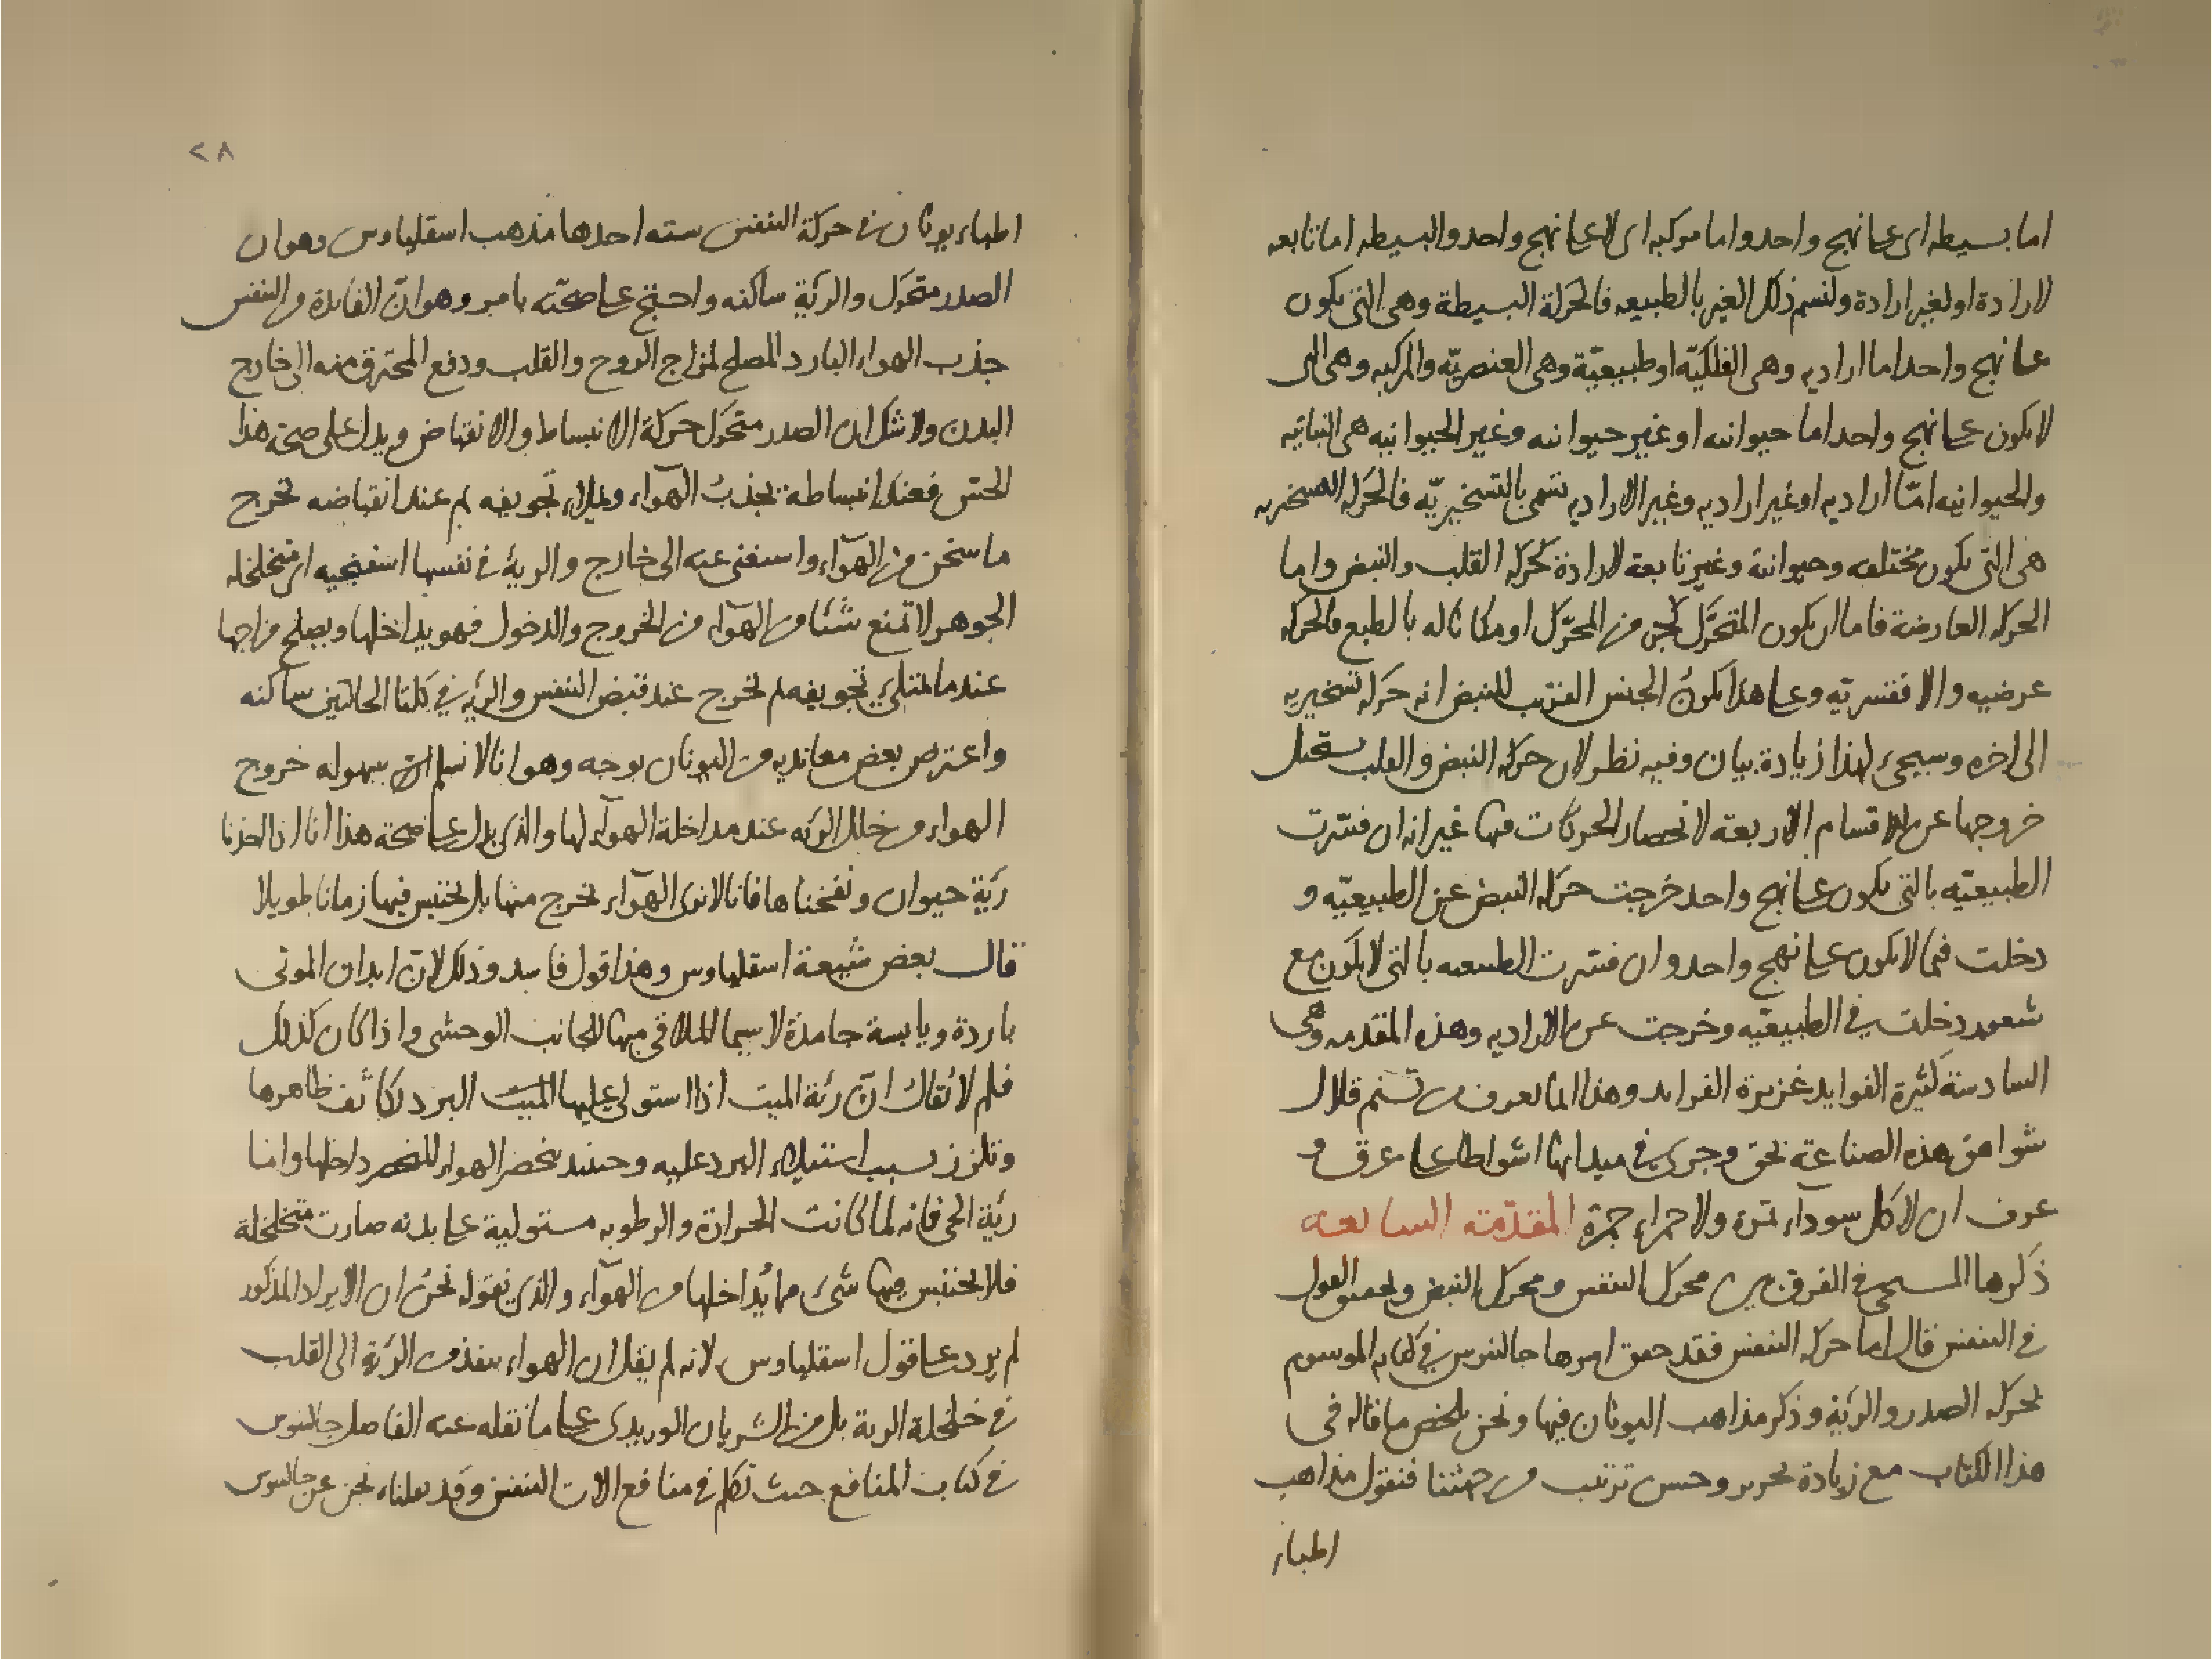 اما بسيطه اى على نهج واحد واما مركبه اى لا على نهج واحد والبسيطه اما تابعه
لارادة او لغير ارادة ولنسم ذلك الغير بالطبيعه فالحركة البسيطة وهى التى يكون
على نهج واحد اما اراديه وهى الفلكيّة او طبيعيّة وهى العنصريّه والمركبه وهى التى
لا يكون على نهج واحد اما حيوانيه او غير حيوانيه وغير الحيوانيه هى النباتيه
والحيوانيه امّا اراديه او غير اراديه وغير الاراديه تسمى بالتسخيريّه فالحركه التسخيريه
هى التى يكون مختلفه وحيوانية وغير تابعة لارادة كحركه القلب والنبض واما
الحركه العارضة فاما ان يكون المتحرّك كجزء من المحرّك او مكانا له بالطبع فالحركه
عرضيه والا فقسريّه وعلى هذا يكونُ الجنس القريب للنبض انه حركه تسخيريه
الى اخره وسيجىء لهذا زيادة بيان وفيه نظر لان حركه النبض والقلب يستحيل
خروجها عن الاقسام الاربعة لانحصار الحركات فيها غير انه ان فسّرت
الطبيعيّه بالتى يكون على نهج واحد خرجت حركه النبض عن الطبيعيّه و
دخلت فيما لا يكون على نهج واحد وان فسّرت الطبيعيه بالتى لا يكون مع
شعور دخلت فى الطبيعيّه وخرجت عن الاراديه وهذه المقدمه وهى
السادسة كثيرة الفوايد غزيرة الفرايد وهذا انما يعرف من تسنم قلال
شواهق هذه الصناعة بحق وجرى فى ميدانها اشواطا على عرق و
عرف ان لا كل سوداء تمرة ولا حمراء جمرة المقدّمة السابعه
ذكرها المسيحى فى الفرق بين محرك التنفس ومحرك النبض وتحقيق القول
فى التنفس قال اما حركه التنفس فقد حقق امرها جالينوس فى كتابه الموسوم
بحركه الصدر والريّة وذكر مذاهب اليونان فيها ونحن نلخص ما قاله فى
هذا الكتاب مع زيادة تحرير وحسن ترتيب من جهتنا فنقول مذاهب
اطباء
٢٨
اطباء يونان فى حركة التنفس سته احدها مذهب اسقلبيادوس وهو ان
الصدر متحرّك والريّة ساكنه واحتج على صحّته بامر وهو انّ الفائدة من التنفس
جذب الهواء البارد المصلح لمزاج الروح والقلب ودفع المحترق منه الى خارج
البدن ولا شك ان الصدر متحرّك حركة الانبساط والانقباض ويدل على صحة هذا
الحسّ فعند انبساطه يجذبُ الهوآء ويملاء تجويفه ثم عند انقباضه تخرج
ما سخن من الهوآء واستغنى عنه الى خارج والرية فى نفسها اسفنجيه اى متخلخله
الجوهر لا تمنع شيئا من الهوآء من الخروج والدخول فهو يداخلها ويصلح مزاجها
عند ما يمتلىء تجويفه ثم تخرج عند قبض التنفس والريه فى كلتا الحالتين ساكنه
واعترض بعض معانديه من اليونان بوجه وهو انا لا نسلم ان سهوله خروج
الهواء من خلل الريّه عند مداخلة الهوآء لها والذى يدل على صحة هذا انا اذا اخذنا
ريّة حيوان ونفخناها فانا لا نرى الهوآء تخرج منها بل يحتبس فيها زمانا طويلا
قال بعض شيعة اسقلبيادوس وهذا قول فاسد وذلك لانّ ابدان الموتى
باردة ويابسة جامدة لا سيما الملاقى منها للجانب الوحشى واذا كان كذلك
فلم لا يُقال انّ ريّة الميت اذا استولى عليها الميت البرد تكاثف ظاهرها
وتلزز بسبب استيلاء البرد عليه وحينئذ ينحصر الهواء داخلها واما
ريّة الحى فانه لما كانت الحرارة والرطوبه مستولية على بدنه صارت متخلخلة
فلا يحتبس فيها شىء مما يُداخلها من الهوآء والذى نقوله نحن ان الايراد المذكور
لم يرد على قول اسقلبيادوس لانه لم يقل ان الهواء ينفذ من الريّة الى القلب
فى خلخلة الرية بل من الشريان الوريدى على ما نقله عنه الفاضل جالينوس
فى كتاب المنافع حيث تكلم فى منافع الات التنفس وقد نقلناه نحن عن جالينوس